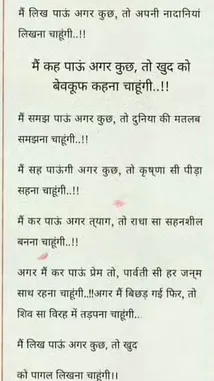 मैं लिख पाऊं अगर कुछ, तो अपनी नादानियां
लिखना चाहूंगी..!!
मैं कह पाऊं अगर कुछ, तो खुद को
बेवकूफ कहना चाहूंगी..!!
मैं समझ पाऊं अगर कुछ, तो दुनिया की मतलब
समझना चाहूंगी..!!
मैं सह पाऊंगी अगर कुछ, तो कृष्णा सी पीड़ा
सहना चाहूंगी..!!
मैं कर पाऊं अगर त्याग, तो राधा सा सहनशील
बनना चाहूंगी..!!
अगर मैं कर पाऊं प्रेम तो, पार्वती सी हर जन्म
साथ रहना चाहूंगी..!!अगर मैं बिछड़ गई फिर, तो
शिव सा विरह में तड़पना चाहूंगी..
मैं लिख पाऊं अगर कुछ, तो खुद
को पागल लिखना चाहूंगी।।